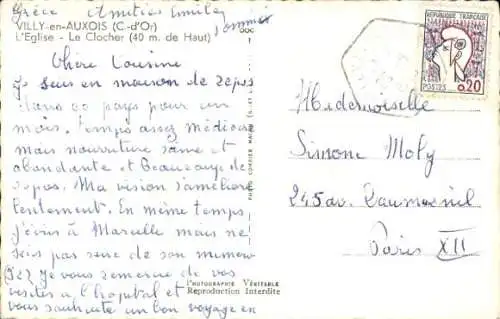 Grèce Amitiés
VILLY-en-AUXOIS (C.-d'Or)
L'Eglise - Le Clocher (40 m. de Haut)
Chère Cousine
Je suis en maison de repos
dans ce pays pour un
mois. Temps assez médiocre
mais nourriture saine et
abondante et beaucoup de
repos. Ma vision s'améliore
lentement. En même temps
j'écris à Marcelle mais ne
suis pas sure de son numero
Je vous remercie de vos
visites à l'hopital et
vous souhaite un bon voyage en
PHOTOGRAPHIE VÉRITABLE
Reproduction Interdite
REPUBLIQUE FRANÇAISE
POSTES 0,20
Mademoiselle
Simone Moly
245 av. Daumesnil
Paris XII